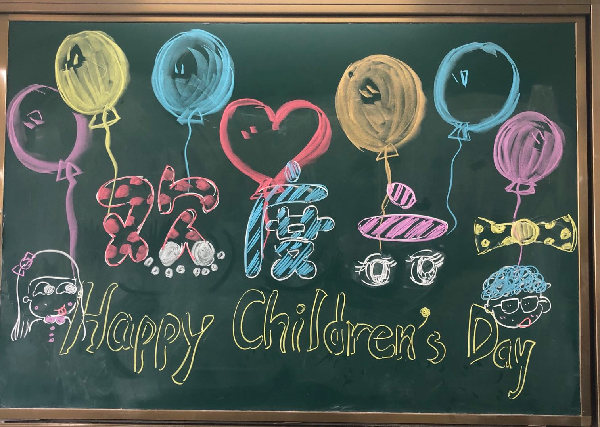 欢度六一
Happy Children's Day